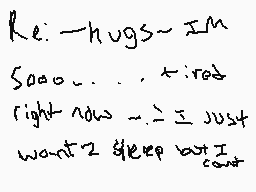 Re: ~hugs~ IM
Sooo..... tired
right now ~.~ I just
want 2 sleep but I
cant